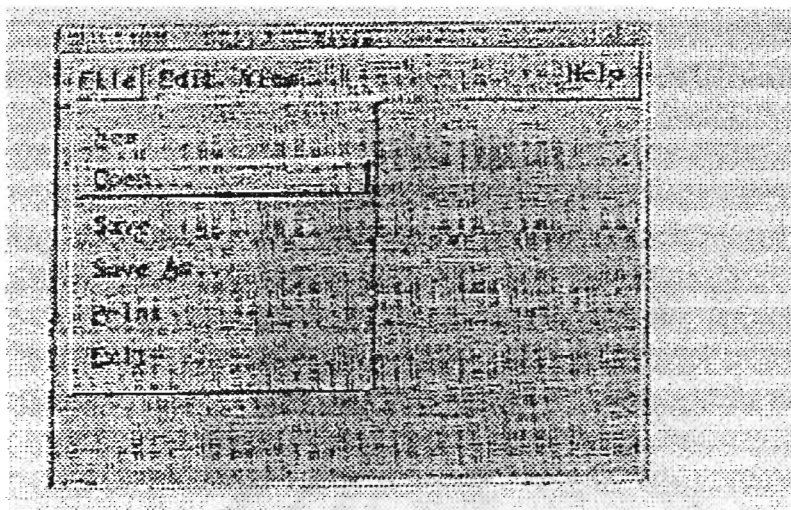 File Edit View Help
New
Open...
Save
Save As...
Print
Exit